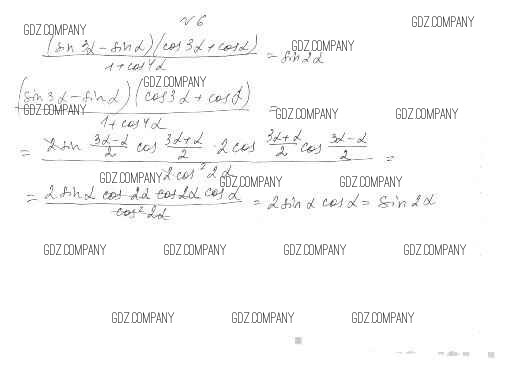 №6
GDZ.COMPANY GDZ.COMPANY
(sin 3α - sin α)(cos 3α + cos α) / 1 + cos 4α = sin 2α
GDZ.COMPANY
GDZ.COMPANY
(sin 3α - sin α)(cos 3α + cos α) / 1 + cos 4α =
GDZ.COMPANY GDZ.COMPANY GDZ.COMPANY
= 2 sin (3α - α)/2 cos (3α + α)/2 · 2 cos (3α + α)/2 cos (3α - α)/2 / 2 cos² 2α =
GDZ.COMPANY GDZ.COMPANY GDZ.COMPANY
= 2 sin α cos 2α cos 2α cos α / cos² 2α = 2 sin α cos α = sin 2α
GDZ.COMPANY GDZ.COMPANY GDZ.COMPANY GDZ.COMPANY
GDZ.COMPANY GDZ.COMPANY GDZ.COMPANY